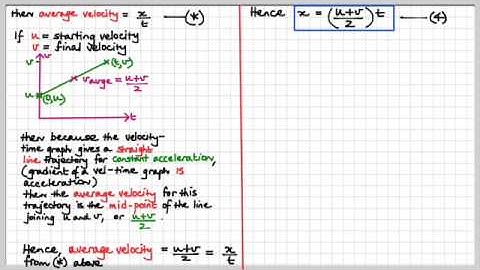 then average velocity = x/t —(*)
If u = starting velocity
v = final velocity
v
v
(t,v)
v avge = u+v/2
u
(0,u)
t
then because the velocity-
time graph gives a straight
line trajectory for constant acceleration,
(gradient of a vel-time graph IS
acceleration)
then the average velocity for this
trajectory is the mid-point of the line
joining u and v, or u+v/2.
Hence, average velocity = u+v/2 = x/t
from (*) above
Hence x = (u+v/2)t —(4)